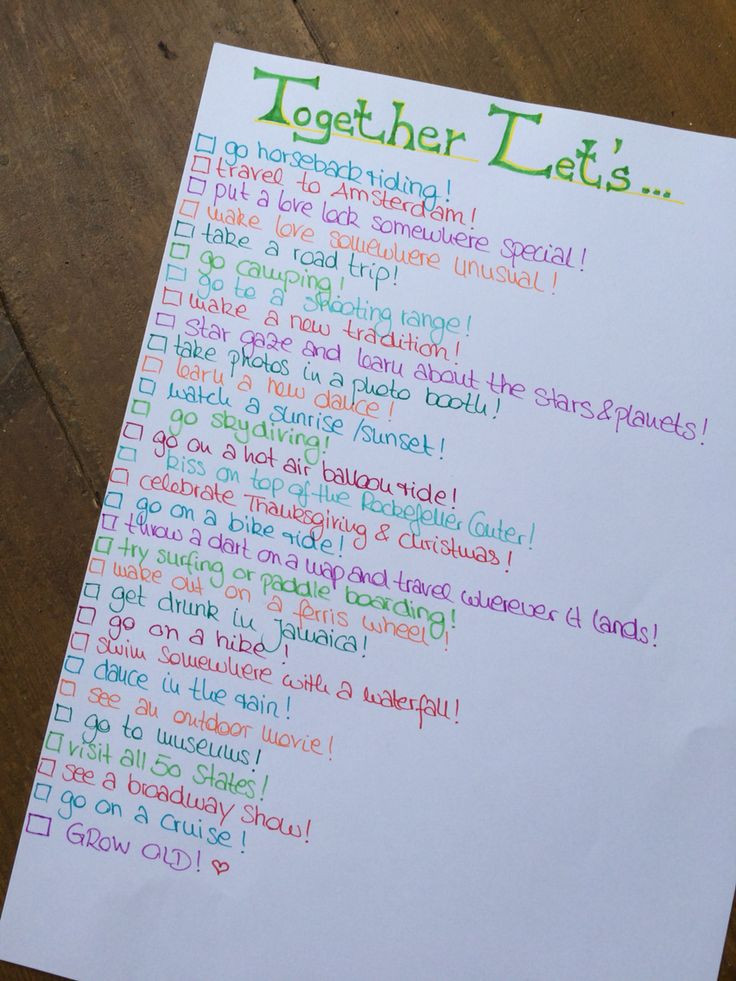 Together Let's...
go horseback riding!
travel to Amsterdam!
put a love lock somewhere special!
make love somewhere unusual!
take a road trip!
go camping!
go to a shooting range!
make a new tradition!
star gaze and learn about the stars & planets!
take photos in a photo booth!
learn a new dance!
watch a sunrise/sunset!
go skydiving!
go on a hot air balloon ride!
kiss on top of the Rockefeller Center!
celebrate Thanksgiving & Christmas!
go on a bike ride!
throw a dart on a map and travel wherever it lands!
try surfing or paddle boarding!
make out on a ferris wheel!
get drunk in Jamaica!
go on a hike!
swim somewhere with a waterfall!
dance in the rain!
see an outdoor movie!
go to museums!
visit all 50 States!
see a broadway show!
go on a cruise!
GROW OLD! ♡